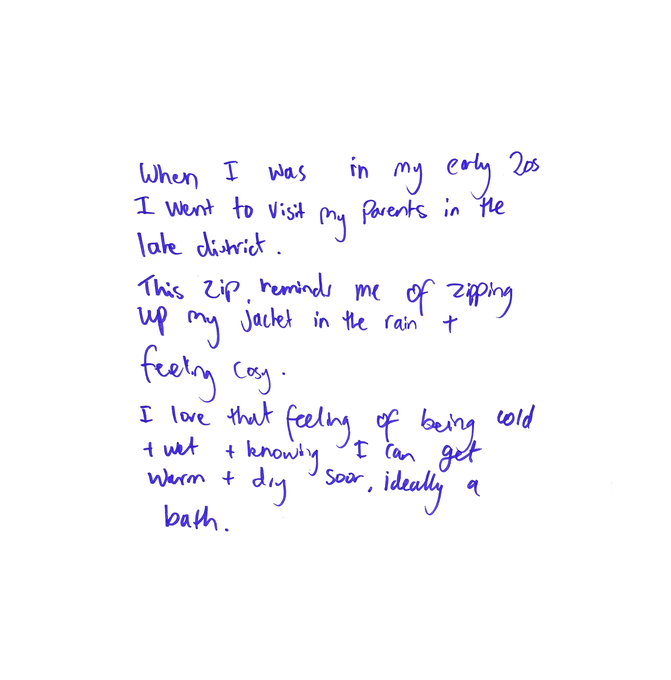 When I was in my early 20s
I went to visit my parents in the
lake district.
This zip reminds me of zipping
up my jacket in the rain +
feeling cosy.
I love that feeling of being cold
+ wet + knowing I can get
warm + dry soon, ideally a
bath.